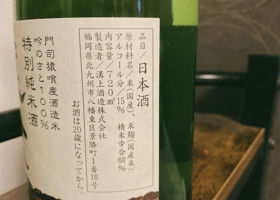 品目/日本酒
原材料名/米(国産)、米麹(国産米)
アルコール分/15% 精米歩合60%
内容量/720ml
製造者/溝上酒造株式会社
福岡県北九州市八幡東区景勝町1番10号
お酒は20歳になってから。
門司猿喰産酒造米
吟のさと100%
特別純米酒